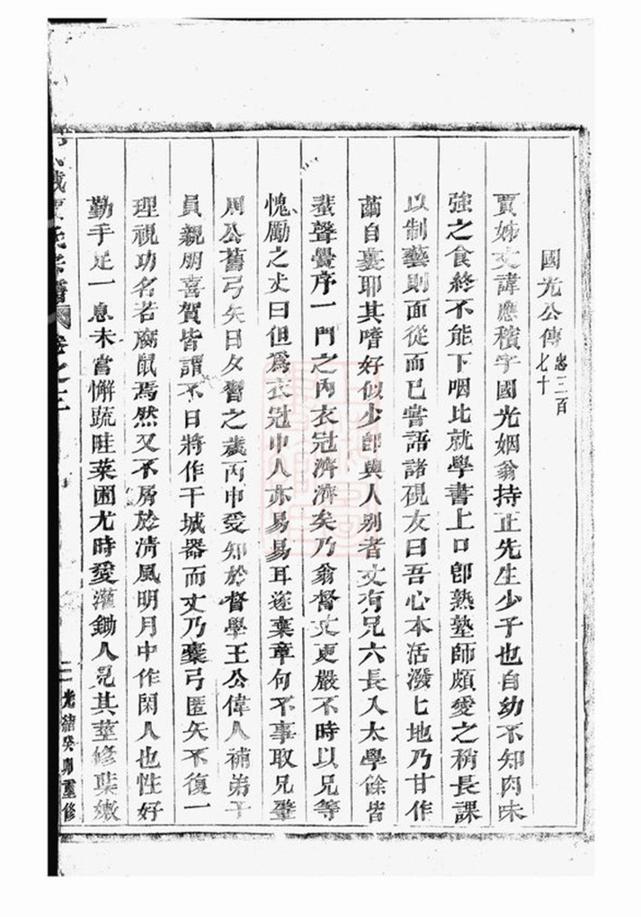 國光公傳 忠三百七十
賈姊丈諱應穳字國光姻翁持正先生少子也自幼不知肉味
強之食終不能下咽比就學書上口卽熟塾師頗愛之稍長課
以制藝則面從而已嘗語諸硯友曰吾心本活潑七地乃甘作
繭自裹耶其嗜好似少卽與人别者丈有兄六長入太學餘皆
蜚聲黌序一門之內衣冠濟濟矣乃翁督丈更嚴不時以兄等
愧勵之丈曰但爲衣冠中人亦易易耳遂棄章句不事取兄璧
周公舊弓矢日夕習之歲丙申受知於督學王公偉人補弟子
員親朋喜賀皆謂不日將作干城器而丈乃櫜弓匿矢不復一
理視功名若腐鼠焉然又不屑於清風明月中作閑人也性好
勤手足一息未嘗懈蔬畦菜圃尤時愛灌鋤人見其莖修葉嫩
氏宗譜 卷之二
光緒癸卯重修